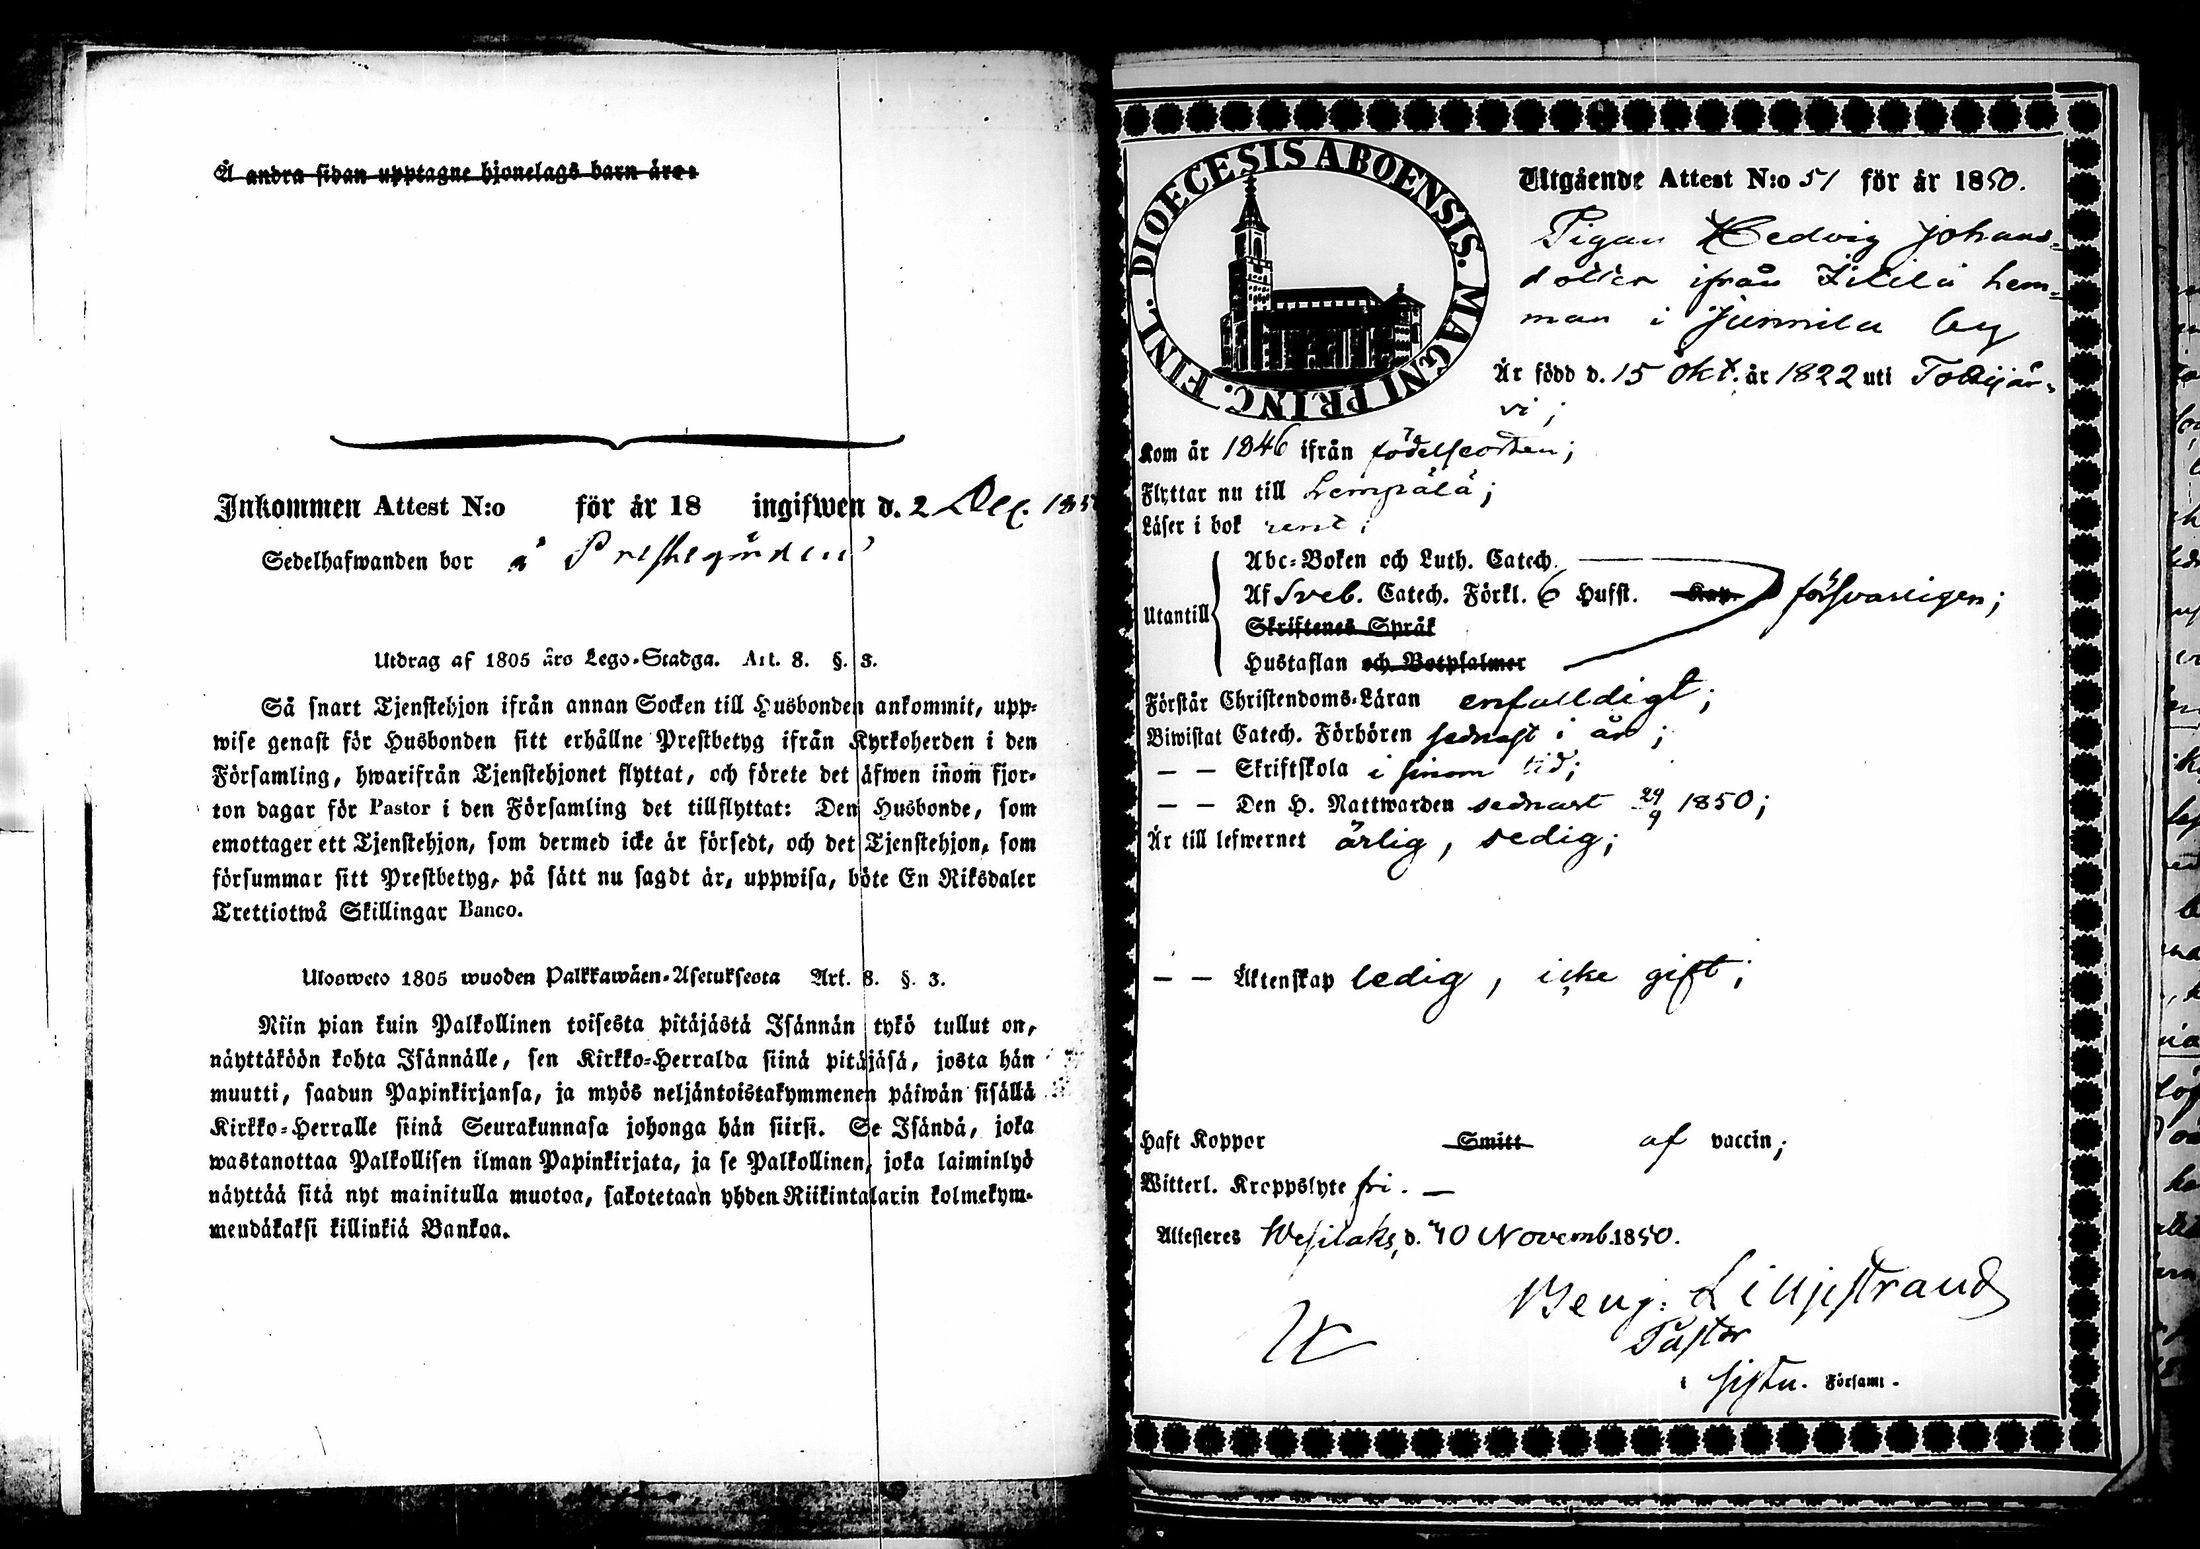 Å andra sidan upptagne hjonelags barn äro:
Inkommen Attest N:o för år 18 ingifwen d. 2 Dec. 185
Sedelhafwanden bor å Prestegården
Utdrag af 1805 års Lego-Stadga. Art. 8. §. 3.
Så snart Tjenstehjon ifrån annan Socken till Husbonden ankommit, upp-
wise genast för Husbonden sitt erhållne Prestbetyg ifrån Kyrkoherden i den
Församling, hwarifrån Tjenstehjonet flyttat, och förete det äfwen inom fjor-
ton dagar för Pastor i den Församling det tillflyttat: Den Husbonde, som
emottager ett Tjenstehjon, som dermed icke är försedt, och det Tjenstehjon, som
försummar sitt Prestbetyg, på sätt nu sagdt är, uppwisa, böte En Riksdaler
Trettiotwå Skillingar Banco.
Ulosweto 1805 wuoden Palkkawäen-Asetuksesta Art. 8. §. 3.
Niin pian kuin Palkollinen toisesta pitäjästä Isännän tykö tullut on,
näyttäköön kohta Isännälle, sen Kirkko-Herralda siinä pitäjäsä, josta hän
muutti, saadun Papinkirjansa, ja myös neljäntoistakymmenen päiwän sisällä
Kirkko-Herralle siinä Seurakunnasa johonga hän siirsi. Se Isändä, joka
wastanottaa Palkollisen ilman Papinkirjata, ja se Palkollinen, joka laiminlyö
näyttää sitä nyt mainitulla muotoa, sakotetaan yhden Riikintalarin kolmekym-
mendäkaksi killinkiä Bankoa.
DIOECESIS ABOENSIS. MAGNI PRINC. FINL.
Utgående Attest N:o 51 för år 1850.
Pigan Hedvig Johans-
dotter ifrån hem-
man i Junnila by
Är född d. 15 Okt. år 1822 uti Tottijär-
vi;
Kom år 1846 ifrån födelseorten;
Flyttar nu till Lempälä;
Läser i bok rent;
Utantill
Abc-Boken och Luth. Catech.
Af Sveb. Catech. Förkl. 6 Hufst. Kap. försvarligen;
Skriftenes Språk
Hustaflan och Botpsalmer
Förstår Christendoms-Läran enfalldigt;
Biwistat Catech. Förhören sednast i år;
— — Skriftskola i sinom tid;
— — Den H. Nattwarden sednast 29/9 1850;
Är till lefwernet ärlig, sedig;
— — Äktenskap ledig, icke gift;
Haft Koppor Smitt af vaccin;
Witterl. Kroppslyte fri. —
Attesteres Wesilaks, d. 10 Novemb. 1850.
Beng: Lilljestrand
Pastor
i Församl.